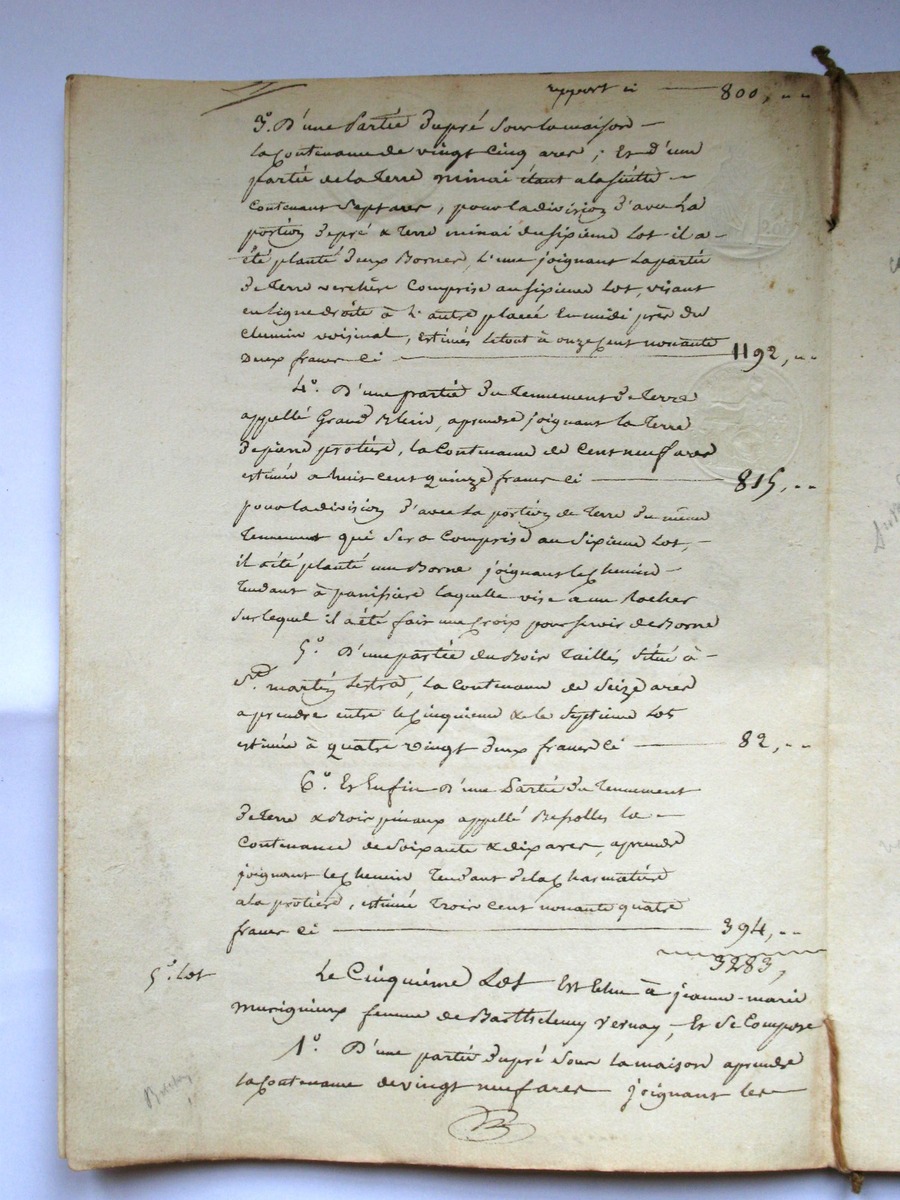 report ci — 800, --
3°. D'une Partie Dupré Sous la maison —
la Contenance de vingt Cinq ares ; Et d'une
partie de la Terre minai étant a la Suitte —
Contenant Sept ares, pour la division D'avec La
portion Dupré & Terre minai du Sixieme Lot - il a -
été planté Deux Bornes, L'une joignant la partie
De Terre verchère Comprise au Sixieme Lot, visant
en ligne droite à L'autre placée En midi près du
Chemin voisinal, estimés Letout à onze Cent nonante
Deux francs Ci — 1192, --
4°. D'une partie Du Tennement De Terre
appellé Grand , aprendre joignant la Terre
De pierre protière, la Contenance de Cent neuf ares
estimée a huit cent quinze francs Ci — 815, --
pour la division D'avec La portion de Terre Du même
Tennement qui Sera Comprise au Sixieme Lot, -
il a été planté une Borne joignant le Chemin -
Tendant à panissiere laquelle vise a un Rocher
Sur lequel il a été fait une Croix pour Servir de Borne
5°. D'une partie du Bois Taillis Situé à -
St. martin Lestra, La Contenance de Seize ares
aprendre entre le Cinquieme & le Septieme Lots
estimée à quatre vingt Deux francs Ci — 82, --
6°. Et Enfin D'une Partie Du Tennement
De Terre & Bois pinaux appellé la -
Contenance de Soixante & dix ares, aprendre
joignant le Chemin Tendant De la Charmatière
a la protière, estimée Trois Cent nonante quatre
francs Ci — 394, --
3283,
5°. Lot
Le Cinquième Lot Est Echu à jeanne-marie
Murigneux femme de Barthelemy Vernay, Et Se Compose
1°. D'une partie Dupré Sous la maison aprendre
la Contenance de vingt neuf ares joignant les -